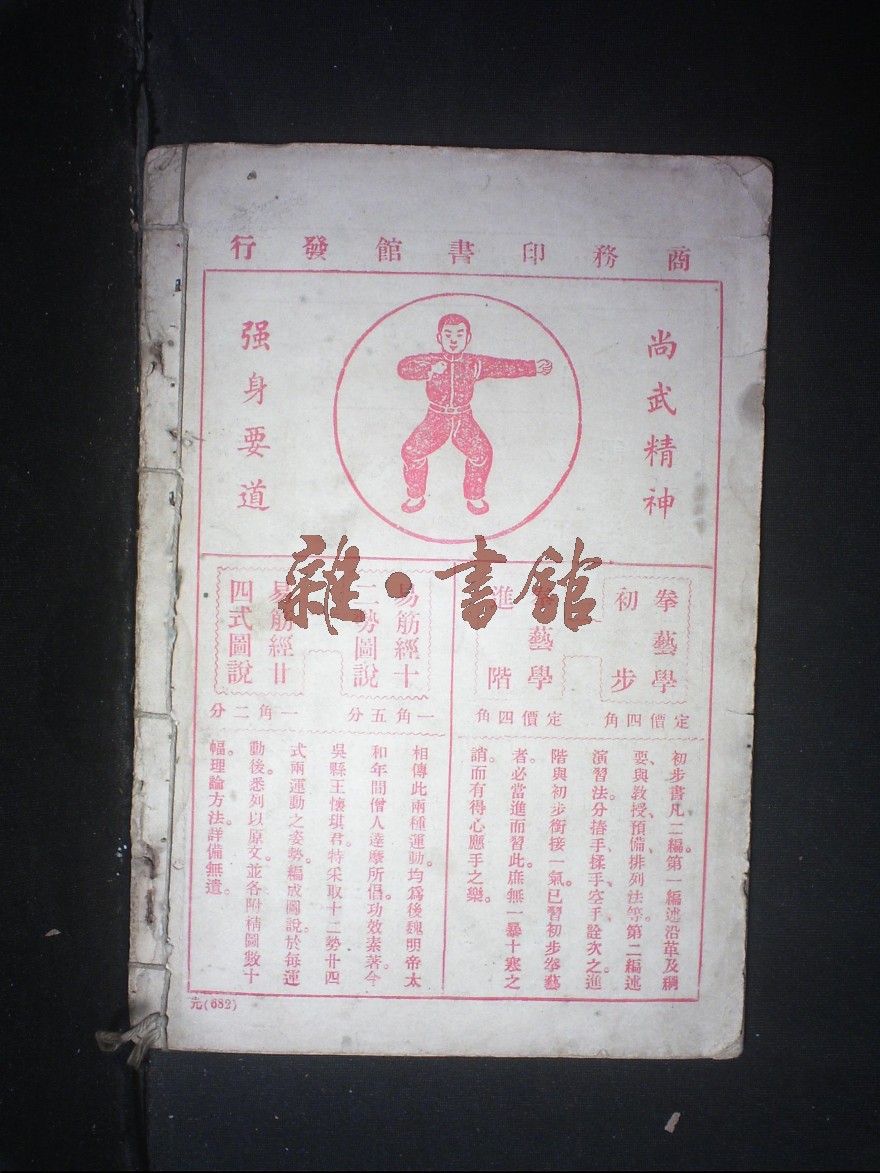 商務印書館發行
尚武精神
强身要道
拳藝學
初步
定價四角
拳藝學
進階
定價四角
易筋經十
二勢圖說
一角五分
易筋經廿
四式圖說
一角二分
初步書凡二編。第一編述沿革及綱
要、與教授、預備、排列法等。第二編述
演習法。分捂手、揉手、空手、詮次之。進
階與初步銜接一氣。已習初步拳藝
者。必當進而習此。庶無一暴十寒之
誚。而有得心應手之樂。
相傳此兩種運動。均爲後魏明帝太
和年間僧人達摩所倡。功效素著。今
吳縣王懷琪君。特采取十二勢廿四
式兩運動之姿勢。編成圖說。於每運
動後。悉列以原文。並各附精圖數十
幅。理論方法。詳備無遺。
元(682)
雜·書館